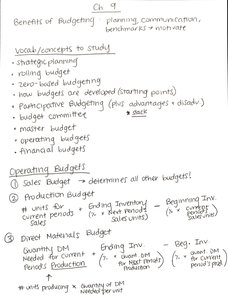 Ch 9
Benefits of Budgeting: planning, communication,
benchmarks → motivate
Vocab/concepts to study
• strategic planning
• rolling budget
• zero-based budgeting
• how budgets are developed (starting points)
• Participative Budgeting (plus advantages + disadv)
• budget committee * slack
• master budget
• operating budgets
• financial budgets
Operating Budgets
① Sales Budget → determines all other budgets!
② Production Budget
# units for current periods Sales + Ending Inventory (% × Next Period's Sales units) - Beginning Inv. (% × current period's Sales units)
③ Direct Materials Budget
Quantity DM Needed for current Period's Production + Ending Inv. (% × Quant DM for Next Period's Production) - Beg. Inv (% × Quant DM for current period's prod.)
# units producing × Quantity of DM Needed per unit